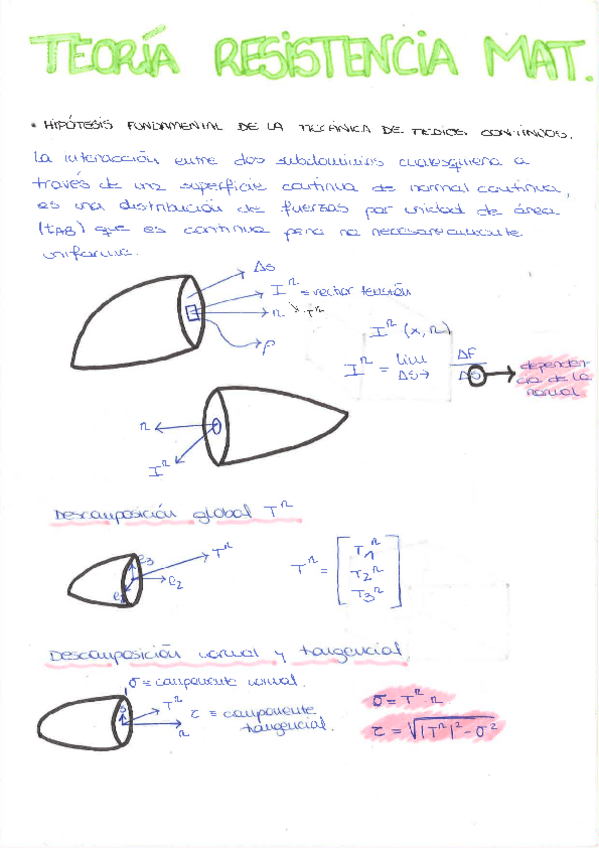 TEORÍA RESISTENCIA MAT.
• HIPÓTESIS FUNDAMENTAL DE LA MECÁNICA DE MEDIOS CONTINUOS.
La interacción entre dos subdominios cualesquiera a
través de una superficie continua de normal continua,
es una distribución de fuerzas por unidad de área
(tAB) que es continua pero no necesariamente
uniforme.
ΔS
Iⁿ = vector tensión
n
Tⁿ
P
Iⁿ (x, n)
Iⁿ = lim ΔS→ ΔF/ΔS
dependen-
cia de la
normal
n
Iⁿ
Descomposición global Tⁿ
e3
Tⁿ
e2
e1
Tⁿ = [T1ⁿ
T2ⁿ
T3ⁿ]
Descomposición normal y tangencial.
σ = componente normal.
Tⁿ
n
τ = componente
tangencial.
σ = Tⁿ · n
τ = √|Tⁿ|² - σ²